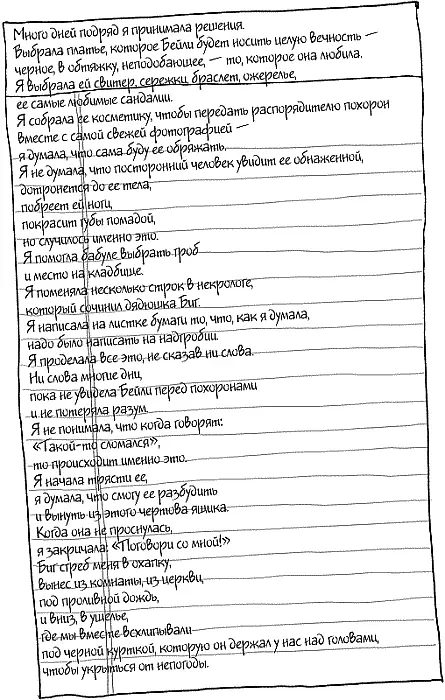 Много дней подряд я принимала решения.
Выбрала платье, которое Бейли будет носить целую вечность —
черное, в обтяжку, неподобающее, — то, которое она любила.
Я выбрала ей свитер, сережки, браслет, ожерелье,
ее самые любимые сандалии.
Я собрала ее косметику, чтобы передать распорядителю похорон
вместе с самой свежей фотографией —
я думала, что сама буду ее обряжать.
Я не думала, что посторонний человек увидит ее обнаженной,
дотронется до ее тела,
побреет ей ноги,
покрасит губы помадой,
но случилось именно это.
Я помогла бабуле выбрать гроб
и место на кладбище.
Я поменяла несколько строк в некрологе,
который сочинил дядюшка Биг.
Я написала на листке бумаги то, что, как я думала,
надо было написать на надгробии.
Я проделала все это, не сказав ни слова.
Ни слова многие дни,
пока не увидела Бейли перед похоронами
и не потеряла разум.
Я не понимала, что когда говорят:
«Такой-то сломался»,
то происходит именно это.
Я начала трясти ее,
я думала, что смогу ее разбудить
и вынуть из этого чертова ящика.
Когда она не проснулась,
я закричала: «Поговори со мной!»
Биг сгреб меня в охапку,
вынес из комнаты, из церкви,
под проливной дождь,
и вниз, в ущелье,
где мы вместе всхлипывали
под черной курткой, которую он держал у нас над головами,
чтобы укрыться от непогоды.